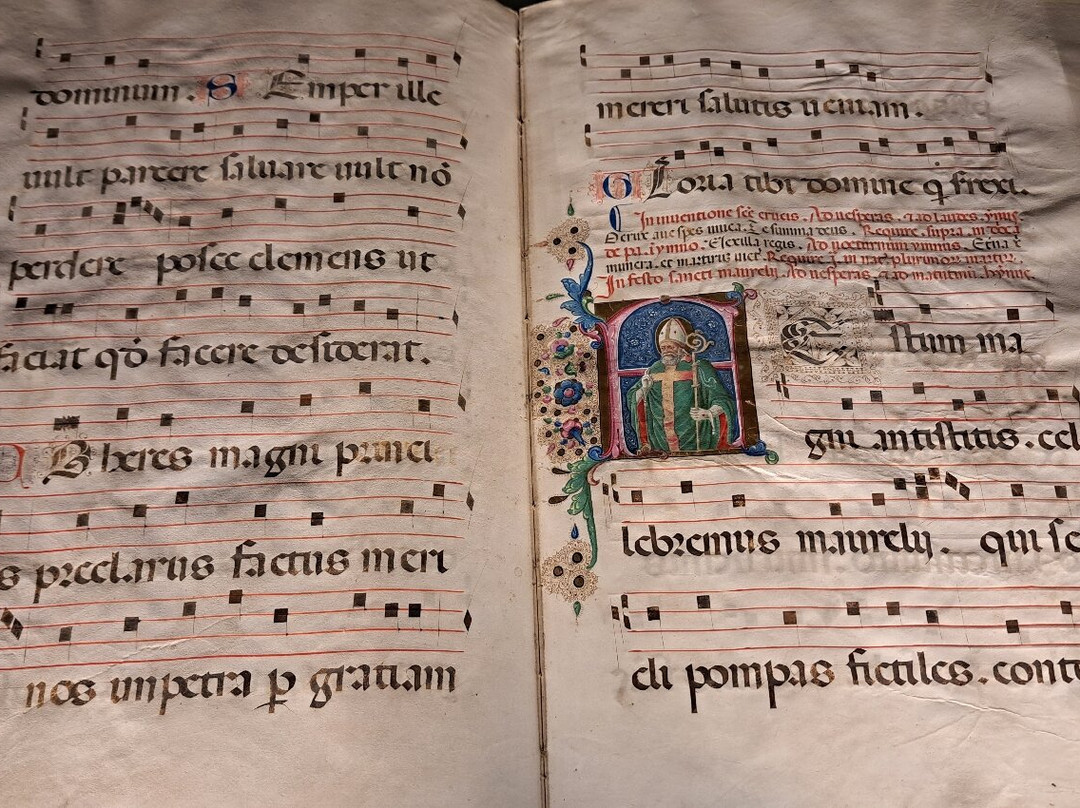 dominum. S Emper ille
uult parcere saluare uult nō
perdere posce clemens ut
faciat qđ facere desiderat.
B lzeres magni princi
s preclarus factus meri
nos impetra ꝑ gratiam
mereri salutis ueniam.
G Loria tibi domine q̄ frexi.
In inuentione scē crucis. Ad uesperas. ⁊ ad laudes. ymus
O crux aue spes unica. Require. supra. in
de pa. ymno. Uexilla regis. Ad nocturnum ymnus.
munera. et martirum Require ī. plurimorum martir.
In festo sancti maurelij. Ad uesperas. ⁊ ad matutinū. hymnus.
F E stum ma
gni antistitis. cel
lebremus maurelij. qui se
cli pompas fictiles. cont